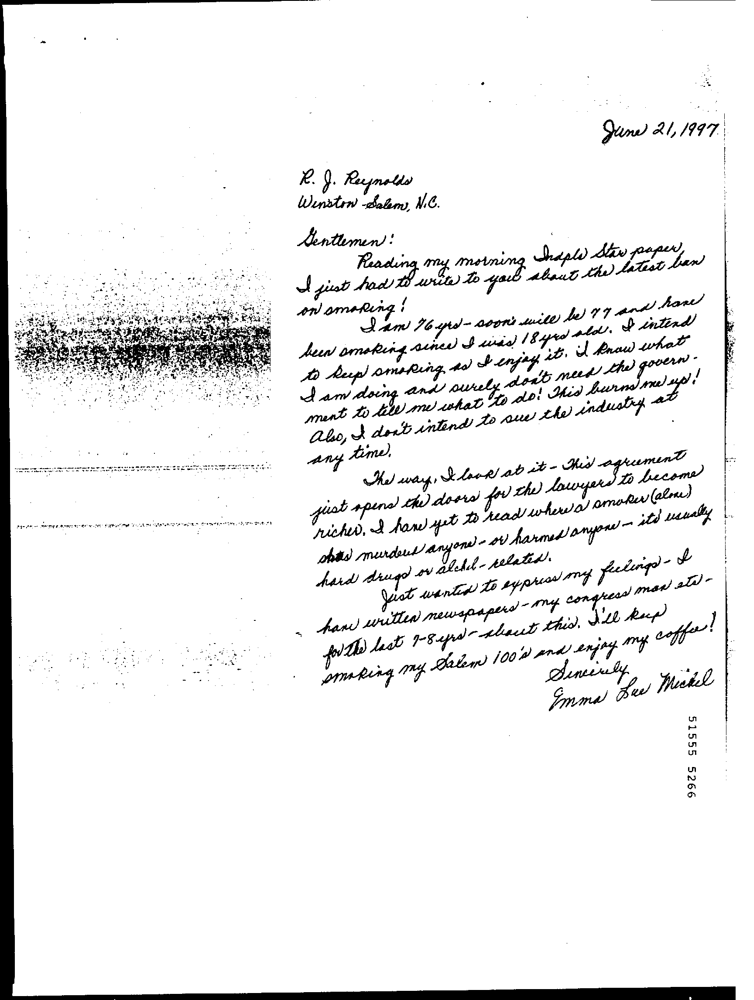 June 21, 1997
R. J. Reynolds
Winston-Salem, N.C.
Gentlemen:
Reading my morning Indpls Star paper,
I just had to write to you about the latest ban
on smoking!
I am 76 yrs - soon will be 77 and have
been smoking since I was 18 yrs old. I intend
to keep smoking, as I enjoy it. I know what
I am doing and surely don't need the govern-
ment to tell me what to do! This burns me up!
Also, I don't intend to sue the industry at
any time.
The way, I look at it - This agreement
just opens the doors for the lawyers to become
richer. I have yet to read where a smoker (alone)
has murdered anyone - or harmed anyone - it's usually
hard drugs or alchol - related.
Just wanted to express my feelings - I
have written newspapers - my congress man etc -
for the last 7-8 yrs - about this. I'll keep
smoking my Salem 100's and enjoy my coffee!
Sincerely
Emma Mickel
51555 5266